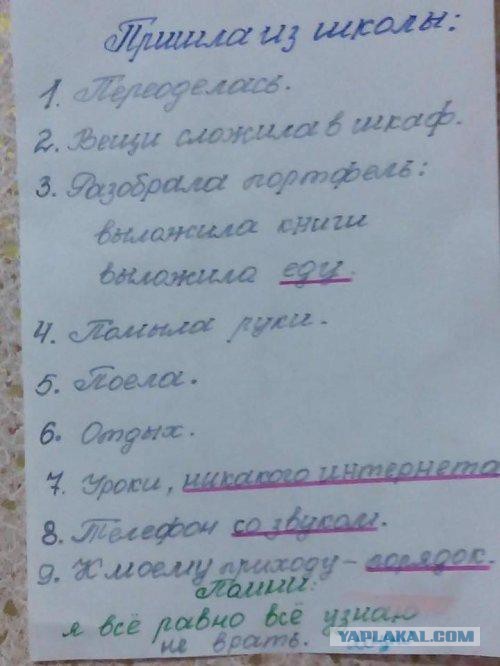 Пришла из школы:
1. Переоделась.
2. Вещи сложила в шкаф.
3. Разобрала портфель:
выложила книги
выложила еду.
4. Помыла руки.
5. Поела.
6. Отдых.
7. Уроки, никакого интернета
8. Телефон со звуком.
9. К моему приходу - порядок.
Помни:
я всё равно всё узнаю
не врать.
YAPLAKAL.COM